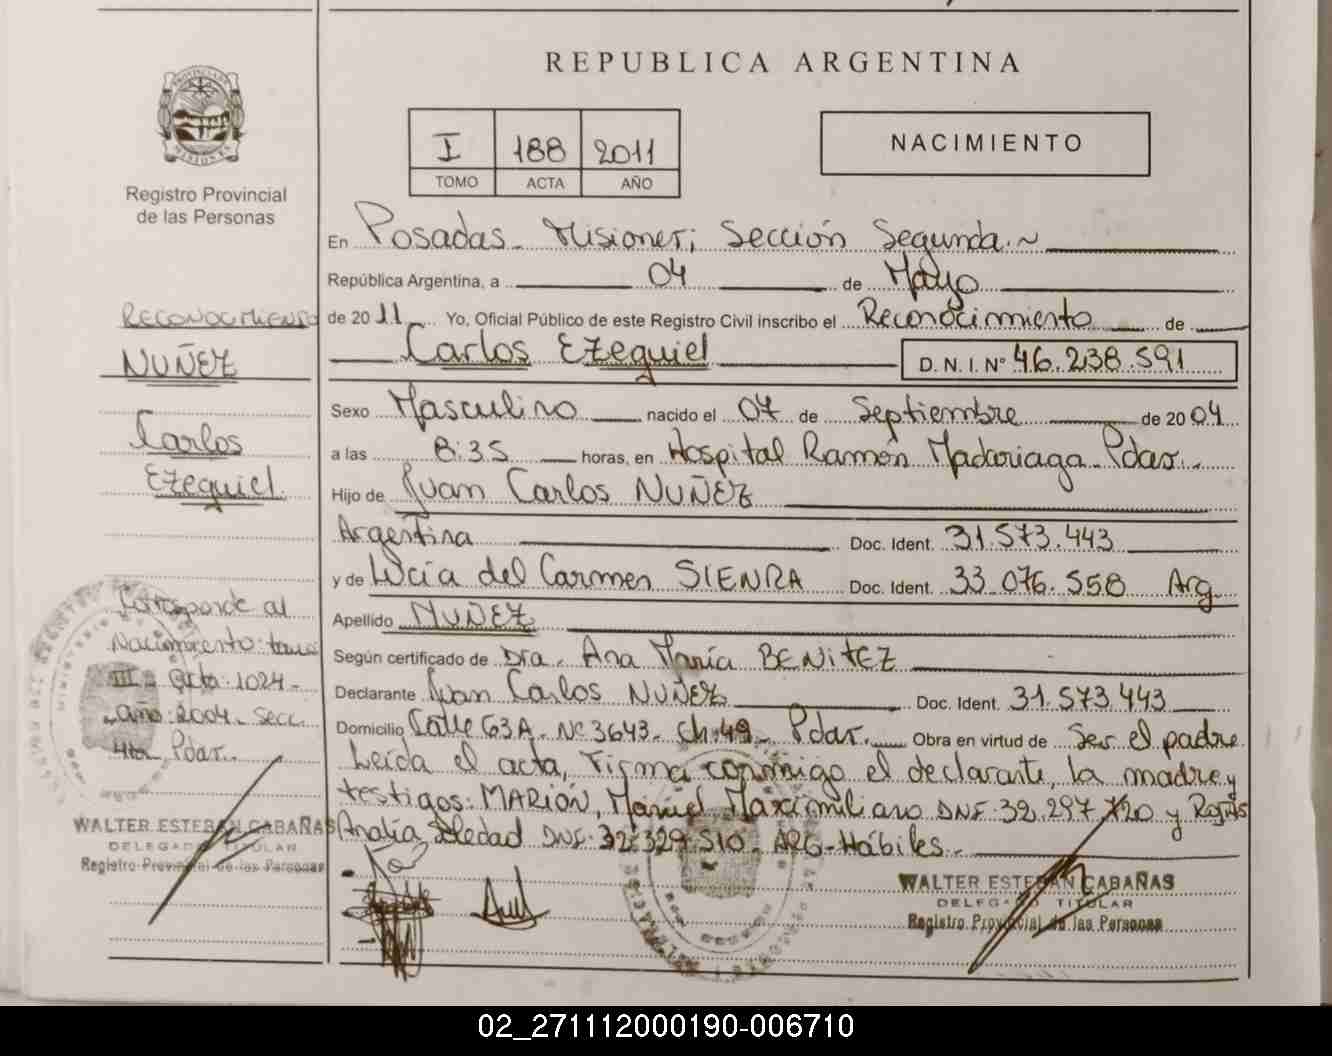 REPUBLICA ARGENTINA
I 188 2011
TOMO ACTA AÑO
NACIMIENTO
PROVINCIA DE
MISIONES
Registro Provincial
de las Personas
RECONOCIMIENTO
NUÑEZ
Carlos
Ezequiel.
Corresponde al
Nacimiento: tomo
III - Acta: 1024 -
Año: 2004 - Secc.
4ta, Pdas.
WALTER ESTEBAN CABAÑAS
DELEGADO TITULAR
Registro Provincial de las Personas
En Posadas - Misiones; Sección Segunda.~
República Argentina, a 04 de Mayo
de 2011 Yo, Oficial Público de este Registro Civil inscribo el Reconocimiento de
Carlos Ezequiel D. N. I. Nº 46.238.591
Sexo Masculino nacido el 07 de Septiembre de 2004
a las 8:35 horas, en Hospital Ramón Madariaga - Pdas.
Hijo de Juan Carlos NUÑEZ
Argentina Doc. Ident. 31.573.443
y de Lucía del Carmen SIENRA Doc. Ident. 33.076.558 Arg.
Apellido NUÑEZ
Según certificado de Dra. Ana María BENITEZ
Declarante Juan Carlos NUÑEZ Doc. Ident. 31.573.443
Domicilio Calle 63A - Nº 3643 - Ch: 49 - Pdas. Obra en virtud de Ser el padre
Leída el acta, Firma conmigo el declarante, la madre y
testigos: MARIÓN, Manuel Maximiliano DNI 32.297.720 y Rojas
Analía Soledad DNI: 32.329.510 - ARG - Hábiles. -
WALTER ESTEBAN CABAÑAS
DELEGADO TITULAR
Registro Provincial de las Personas
02_271112000190-006710